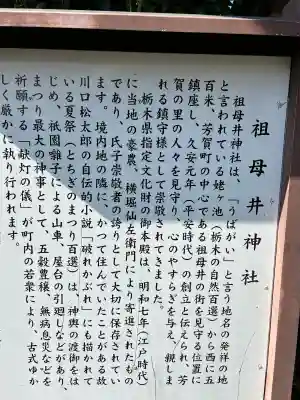 祖母井神社
祖母井神社は、「うばがい」と言う地名の発祥の地
と言われている姥ヶ池（栃木の自然百選）から西に五
百米、芳賀町の中心である祖母井の街を見守る位置に
鎮座し、久安元年（平安時代）の創立と伝えられ、芳
賀の里の人々を見守り、心のやすらぎを与え、親しま
れる鎮守様として崇敬されてきました。
栃木県指定文化財の御本殿は、明和七年（江戸時代）
に当地の豪農、横堀仙左衛門により寄進されたもの
であり、氏子崇敬者の誇りとして大切に保存されてい
ます。境内地の隣に、かつて住んでいたことがある故
川口松太郎の自伝的小説「破れかぶれ」にも描かれて
いる夏祭（とちぎのまつり百選）は、神輿の渡御をは
じめ、祇園囃子による山車、屋台の引廻しなどがあり、
まつり最大の神事として、五穀豊穣、無病息災などを
祈願する「献灯の儀」が町内の若衆により、古式ゆか
しく厳かに執り行われます。